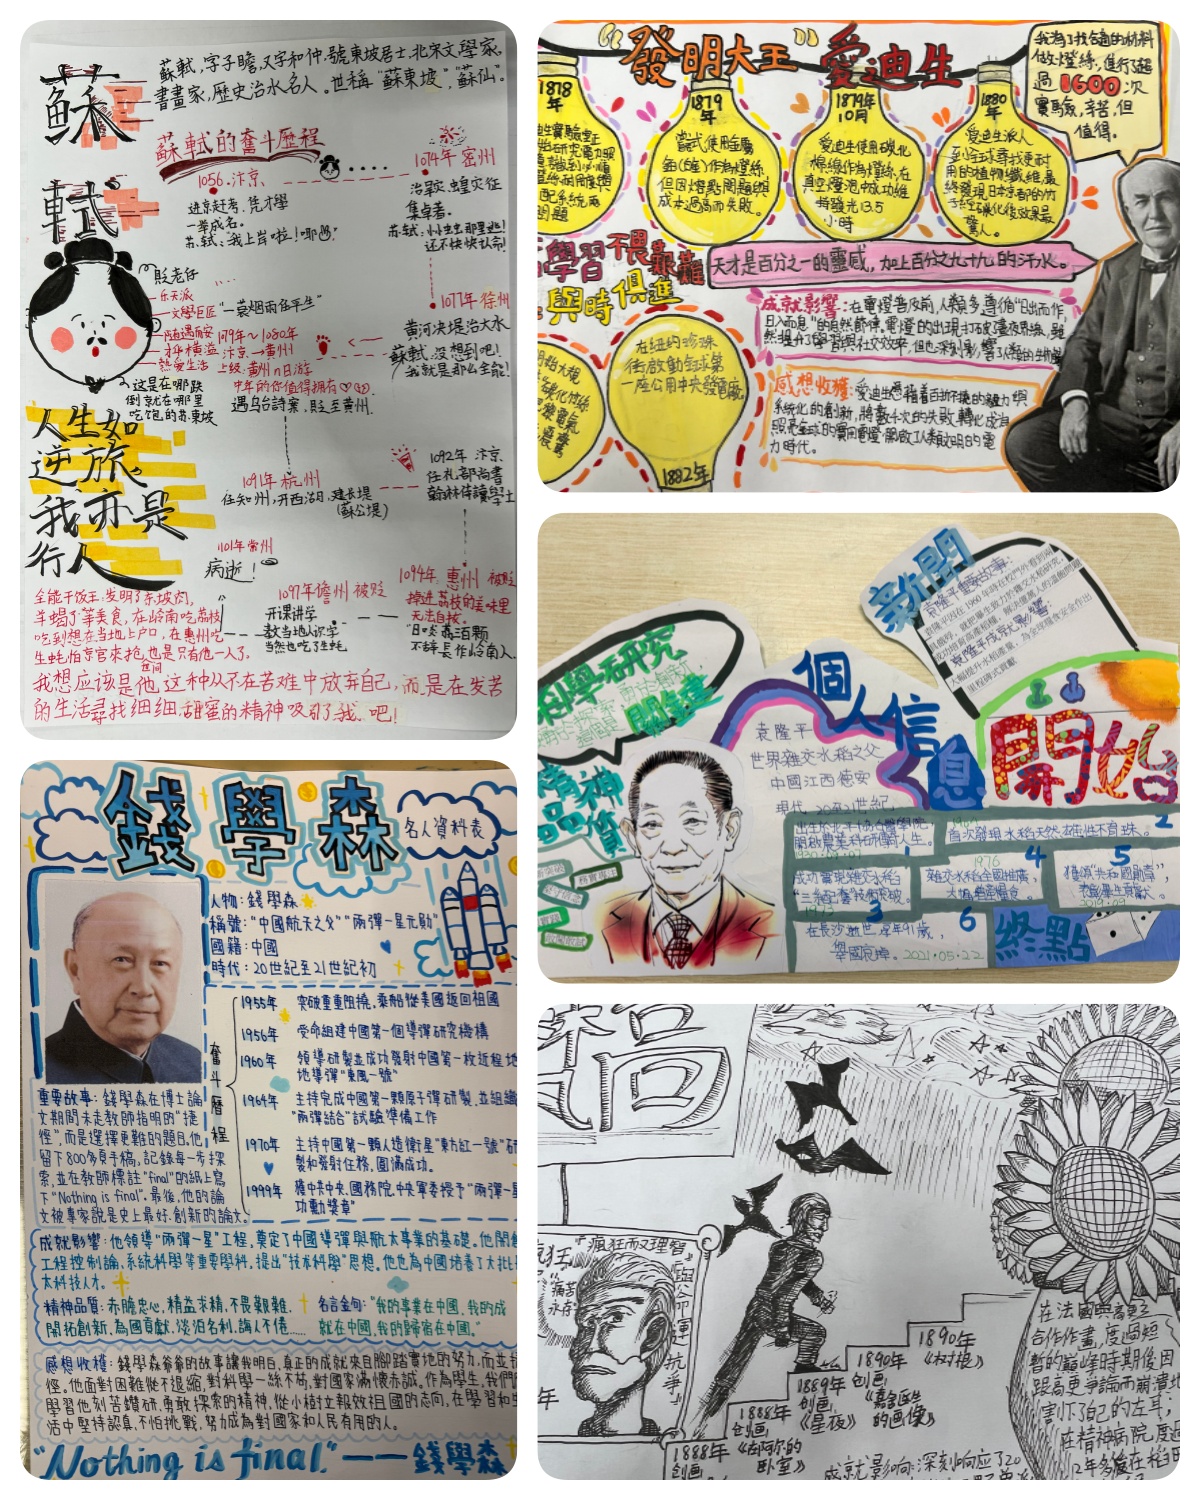 蘇軾
蘇軾，字子瞻，又字和仲，號東坡居士，北宋文學家，
書畫家，歷史治水名人。世稱"蘇東坡"，"蘇仙"。
蘇軾的奋斗歷程
1056.汴京.
进京赶考，凭才學
一举成名。
苏轼："我上岸啦！
1074年 密州
治旱灾、蝗灾征
集卓著。
还不快快认命！
1077年 徐州
黄河决堤，治大水
蘇軾："没想到吧！
我就是那么全能！
贬老仔
乐天派
文學巨匠
"一蓑烟雨任平生"
随遇而安
才华橫溢
熱爱生活
1079年～1080年
汴京→黄州
上级：黄州n日游
中年的你值得拥有
遇乌台詩案，貶至黄州.
这是在哪跌
倒就在哪里
吃饱的苏東坡
人生如
逆旅，
我亦是
行人
1091年 杭州
任知州，开西湖，建长堤
(蘇公堤)
1092年 汴京.
任礼部尚書
翰林侍讀學士
1101年 常州
病逝！
1097年 儋州 被贬
开课讲学
教当地人识字
当然也吃了生蚝
1094年 惠州 被贬
掉进荔枝的美味里
无法自拔。
"日啖荔枝三百颗
不辞長作岭南人.
全能干饭王：发明了东坡肉，
羊蝎子等美食，在岭南吃荔枝
吃到想在当地上户口，在惠州吃
生蚝怕京官来抢，也是只有他一人了。
我想应该是他这种从不在苦难中放弃自己，而是在发苦
的生活尋找细细甜蜜的精神吸引了我.吧！
"發明大王"愛迪生
我為了找合適的材料
做燈絲，進行了超
過1600次
實驗，辛苦，但
值得。
1878
年
1879
年
嘗試使用金屬
鉑(鎳)作為燈絲，
但因熔點問題與
成本過高而失敗。
1879年
10月
愛迪生使用碳化
棉線作為燈絲，在
真空燈泡中成功維
持發光13.5
小時
1880
年
愛迪生派人
到全球尋找更耐
用的植物纖維，最
終發現日本京都的竹
子經碳化後效果最
驚人。
學習不畏艱難
與時俱進
天才是百分之一的靈感，加上百分之九十九的汗水。
成就影響：在電燈普及前，人類多遵循"日出而作，
日入而息"的自然節律，電燈的出現打破晝夜界線，雖
感想收穫：愛迪生憑藉着百折不撓的毅力與
系統化的創新，將數千次的失敗轉化成為
照亮全球的實用電燈，開啟了人類文明的電
力時代。
在紐約珍珠
街啟動全球第
一座公用中央發電廠
1882年
新聞
袁隆平重要故事：
袁隆平成就影響：
科學研究
關鍵
個人信息
袁隆平
世界雜交水稻之父
中國江西德安
現代 20至21世紀
精神品質
開始
出生於北平協和醫學院，
開啟農業科研傳奇人生。
1930.09.07 1
首次發現水稻天然雄性不育株。 2
成功實現雜交水稻
"三系配套"技術突破。
1973 3
1976 4
雜交水稻全國推廣，
大幅增產糧食。
5
獲頒"共和國勳章"，
表彰畢生貢獻。
2019.09
6
在長沙逝世，享年91歲，
舉國哀悼。2021.05.22
終點
錢學森
名人資料表
人物：錢學森
稱號："中國航天之父""兩彈一星元勛"
國籍：中國
時代：20世紀至21世紀初
奮斗歷程
1955年 突破重重阻撓，乘船從美國返回祖國
1956年 受命組建中國第一個導彈研究機構
1960年 領導研製並成功發射中國第一枚近程地
地導彈"東風一號"
1964年 主持完成中國第一顆原子彈研製，並組織
"兩彈結合"試驗準備工作
1970年 主持中國第一顆人造衛星"東方紅一號"研
製和發射任務，圓滿成功。
1999年 獲中共中央、國務院、中央軍委授予"兩彈一星
功勳獎章"
重要故事：錢學森在博士論
文期間未走教師指明的"捷
徑"，而是選擇更難的題目，他
留下800多頁手稿，記錄每一步探
索，並在教師標註"final"的紙上寫
下"Nothing is final"。最後，他的論
文被專家說是史上最好、創新的論文。
成就影響：他領導"兩彈一星"工程，奠定了中國導彈與航太事業的基礎。他開創
工程控制論、系統科學等重要學科，提出"技術科學"思想，他也為中國培養了大批
太科技人才。
精神品質：赤膽忠心，精益求精，不畏艱難，
開拓創新，為國貢獻，淡泊名利，誨人不倦……
名言金句："我的事業在中國，我的成
就在中國，我的歸宿在中國。"
感想收穫：錢學森爺爺的故事讓我明白，真正的成就來自腳踏實地的努力，而並非
徑。他面對困難從不退縮，對科學一絲不苟，對國家滿懷赤誠。作為學生，我們
學習他刻苦鑽研，勇敢探索的精神，從小樹立報效祖國的志向，在學習和生
活中堅持認真，不怕挑戰，努力成為對國家和人民有用的人。
"Nothing is final."——錢學森
"瘋狂而又理智"
與命運抗爭
1890年
《树根》
1890年
创画
《嘉舍医生
的画像》
1889年
创画
《星夜》
1888年
创画
《在阿尔的
卧室》
1888年
创画
在法國與高更
合作作畫，度過短
暫的巔峰時期後因
跟高更爭論而崩潰地
割下了自己的左耳；
在精神病院度過
成就影响：深刻响应了20